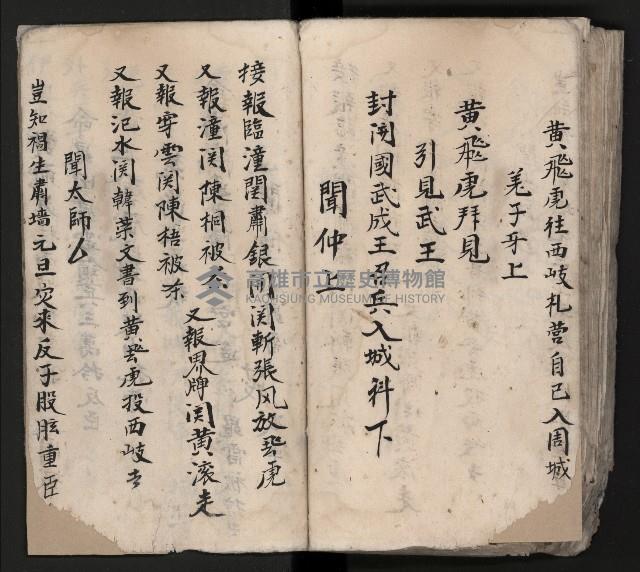 黃飛虎往西岐札营自己入周城
姜子牙上
黃飛虎拜見
引見武王
封開國武成王孟兵入城科下
聞仲上
接報臨潼関肅銀開関斬張风放飛虎
又報潼関陳桐被杀
又報界牌関黃滚走
又報穿雲関陳梧被杀
又報汜水関韓荣文書到黃飛虎投西岐去
聞太師厶
豈知禍生肅墙元旦灾來反了股肱重臣
高雄市立歷史博物館
KAOHSIUNG MUSEUM OF HISTORY